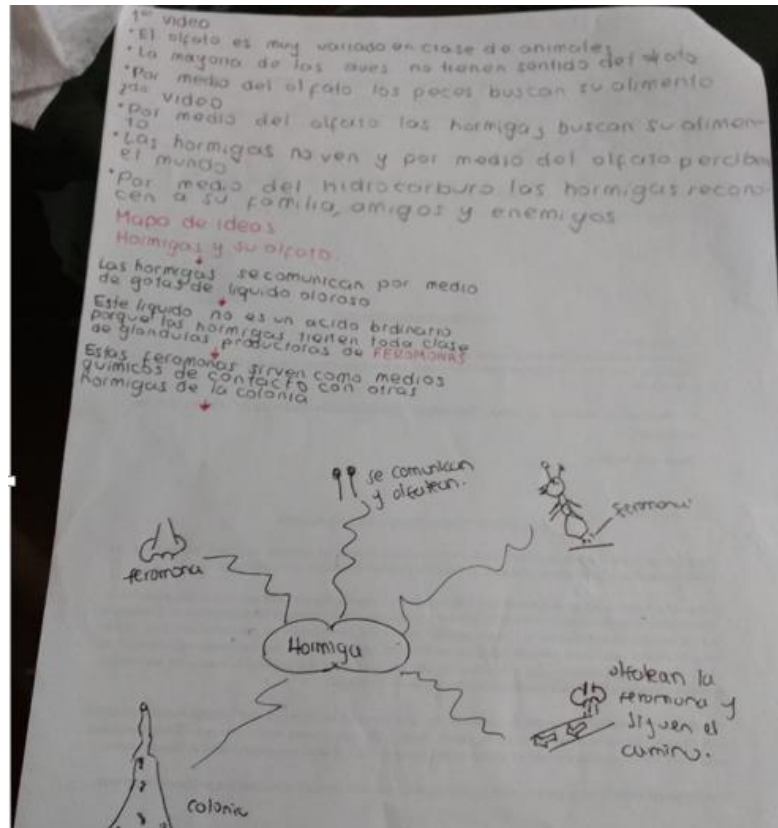 1er video
*El olfato es muy variado en clase de animales
*La mayoria de las aves no tienen sentido del olfato
*Por medio del olfato los peces buscan su alimento
2do video
*Por medio del olfato las hormigas buscan su alimen-
to
*Las hormigas no ven y por medio del olfato perciben
el mundo
*Por medio del hidrocarburo las hormigas recono-
cen a su familia, amigos y enemigos
Mapa de ideas
Hormigas y su olfato.
Las hormigas se comunican por medio
de gotas de liquido oloroso
Este liquido no es un acido ordinario
porque las hormigas tienen toda clase
de glandulas productoras de FEROMONAS
Estas feromonas sirven como medios
quimicos de contacto con otras
hormigas de la colonia
se comunican
y olfatean.
feromona
feromona
Hormiga
olfatean la
feromona y
siguen el
camino.
colonia